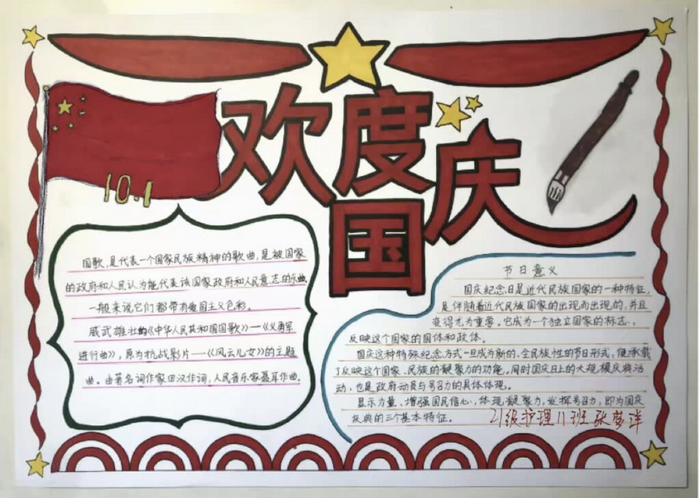 欢度国庆
10.1
国歌,是代表一个国家民族精神的歌曲,是被国家
的政府和人民认为能代表该国家政府和人民意志的乐曲.
一般来说它们都带有爱国主义色彩.
威武雄壮的《中华人民共和国国歌》——《义勇军
进行曲》,原为抗战影片——《风云儿女》的主题
曲。由著名词作家田汉作词,人民音乐家聂耳作曲.
节日意义
国庆纪念日是近代民族国家的一种特征,
是伴随着近代民族国家的出现而出现的,并且
变得尤为重要。它成为一个独立国家的标志,
反映这个国家的国体和政体。
国庆这种特殊纪念方式一旦成为新的、全民族性的节日形式,便承载
了反映这个国家、民族的凝聚力的功能,同时国庆日上的大规模庆典活
动,也是政府动员与号召力的具体体现。
显示力量、增强国民信心,体现凝聚力,发挥号召力,即为国庆
庆典的三个基本特征。
21级护理11班张梦洋